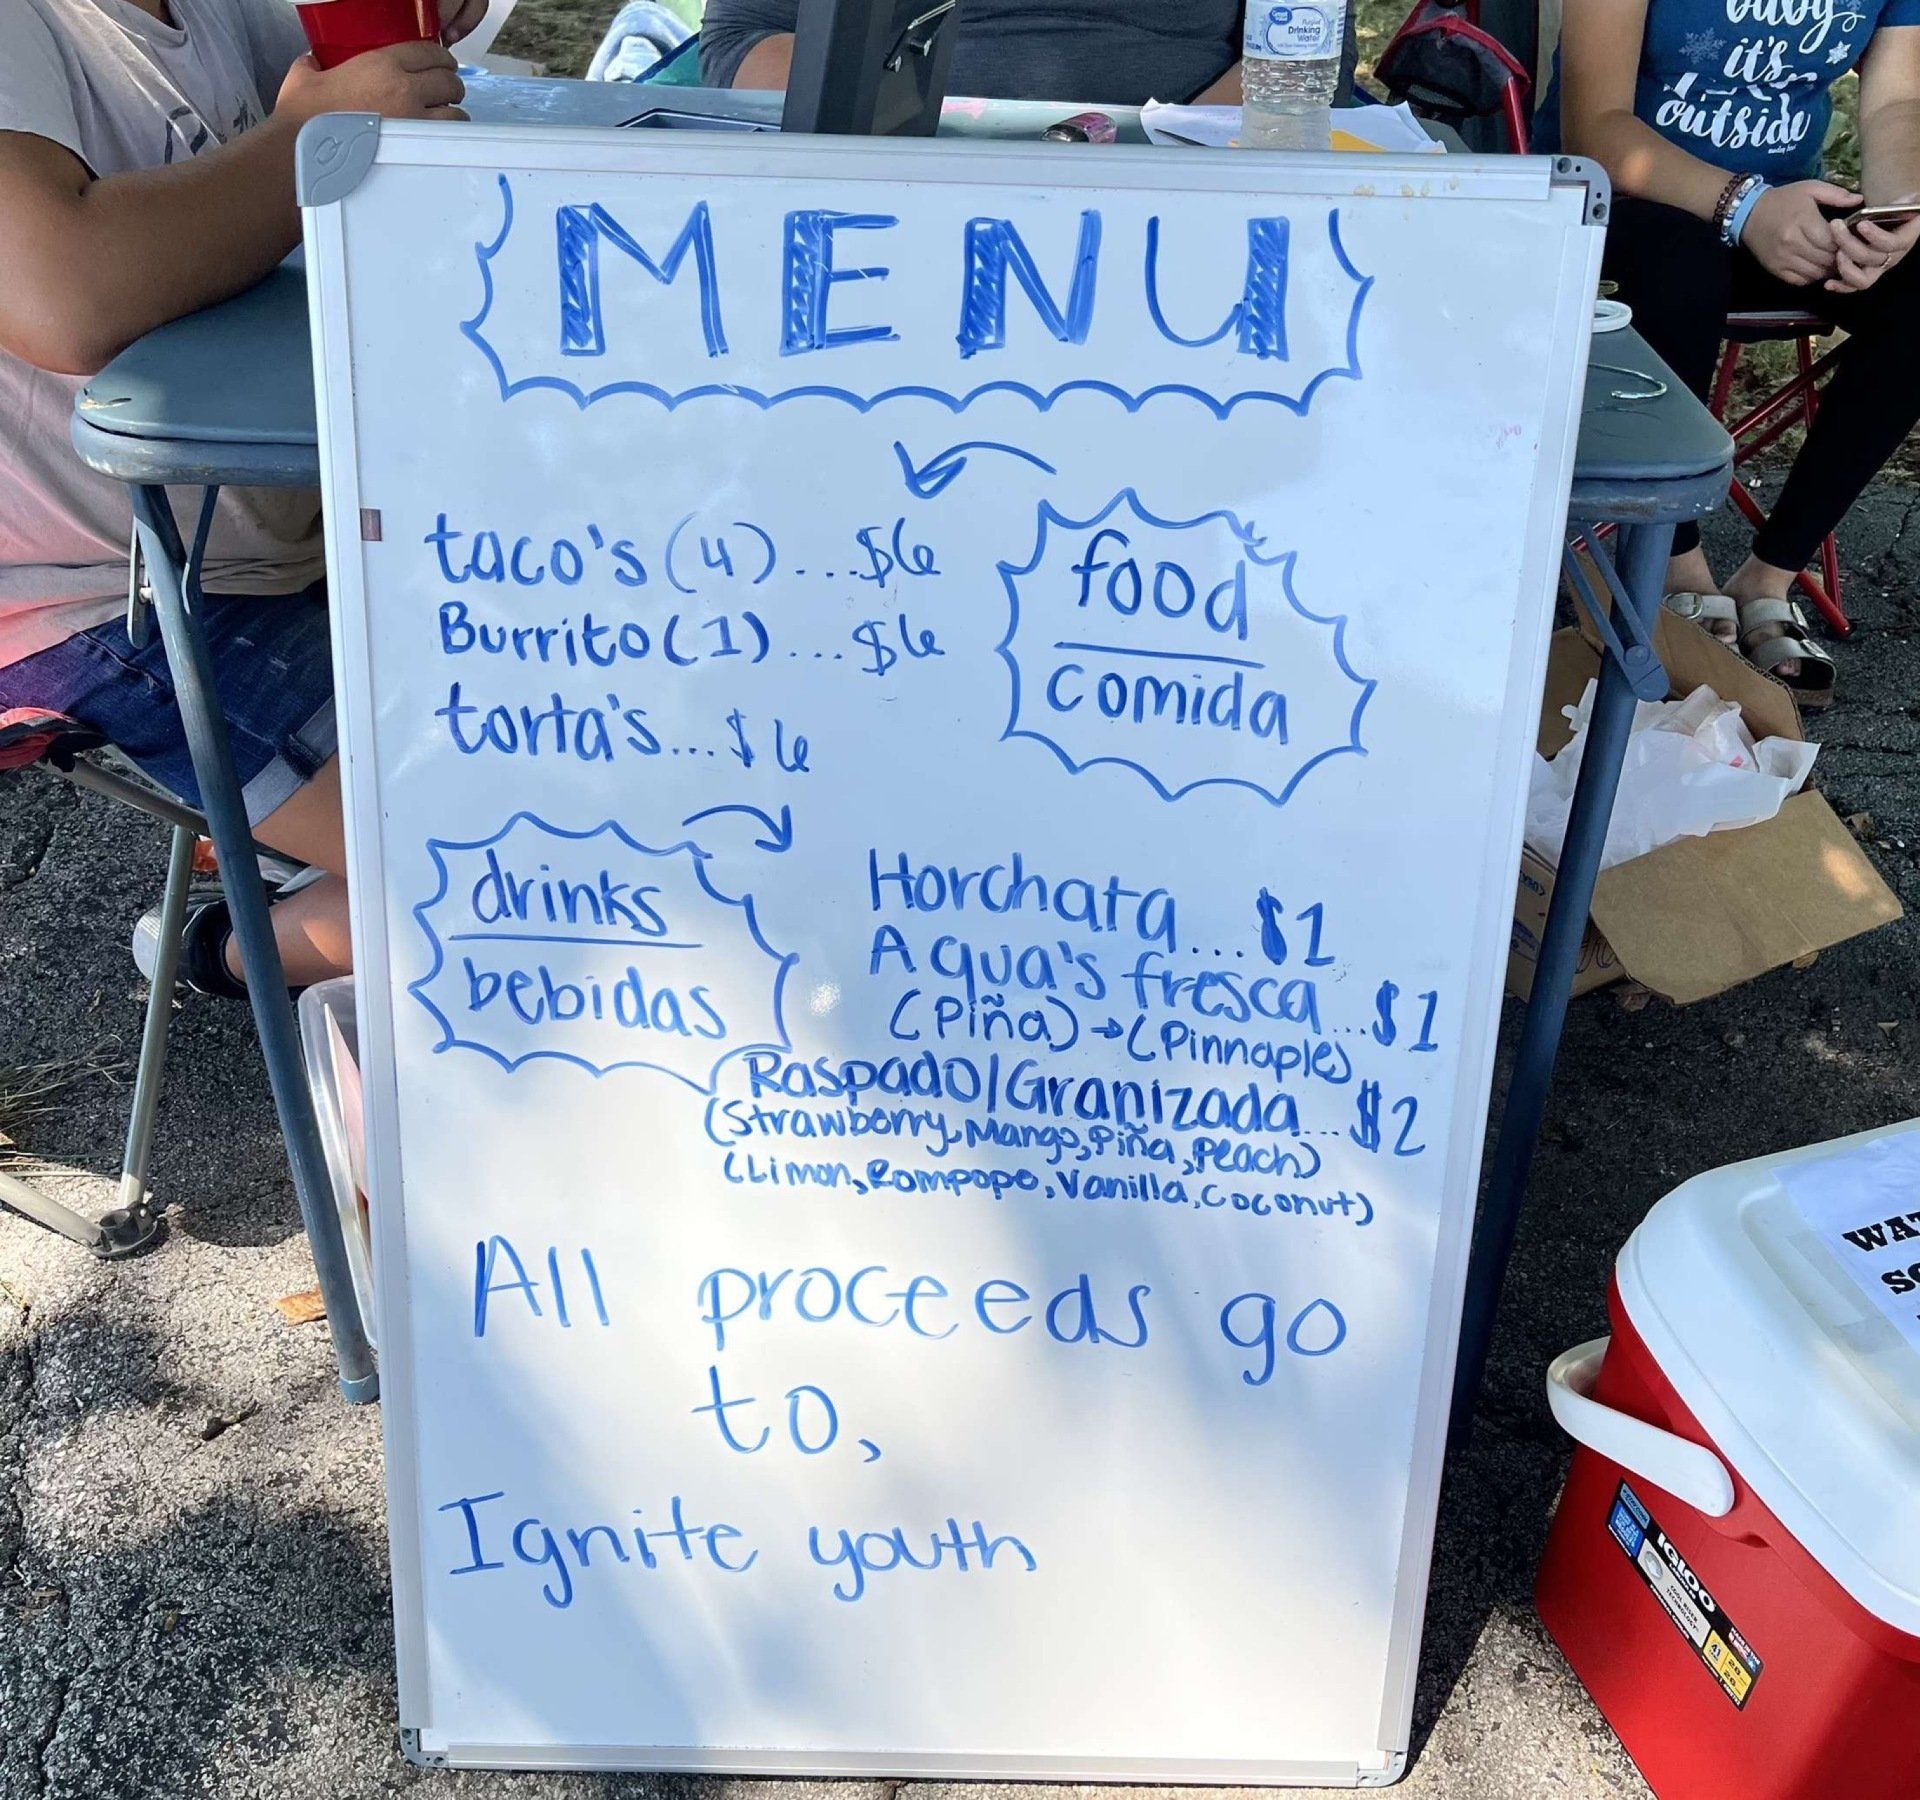 baby
it's
outside
Great Value
Purified
Drinking
Water
MENU
taco's (4)...$6
Burrito (1)...$6
torta's...$6
food
comida
drinks
bebidas
Horchata...$1
Aqua's fresca...$1
(Piña)→(Pinnaple)
Raspado/Granizada...$2
(Strawberry, Mango, Piña, Peach)
(Limon, Rompope, Vanilla, Coconut)
All proceeds go
to,
Ignite youth
WAT
SO
IGLOO
COOL RISER
TECHNOLOGY
41
28
26